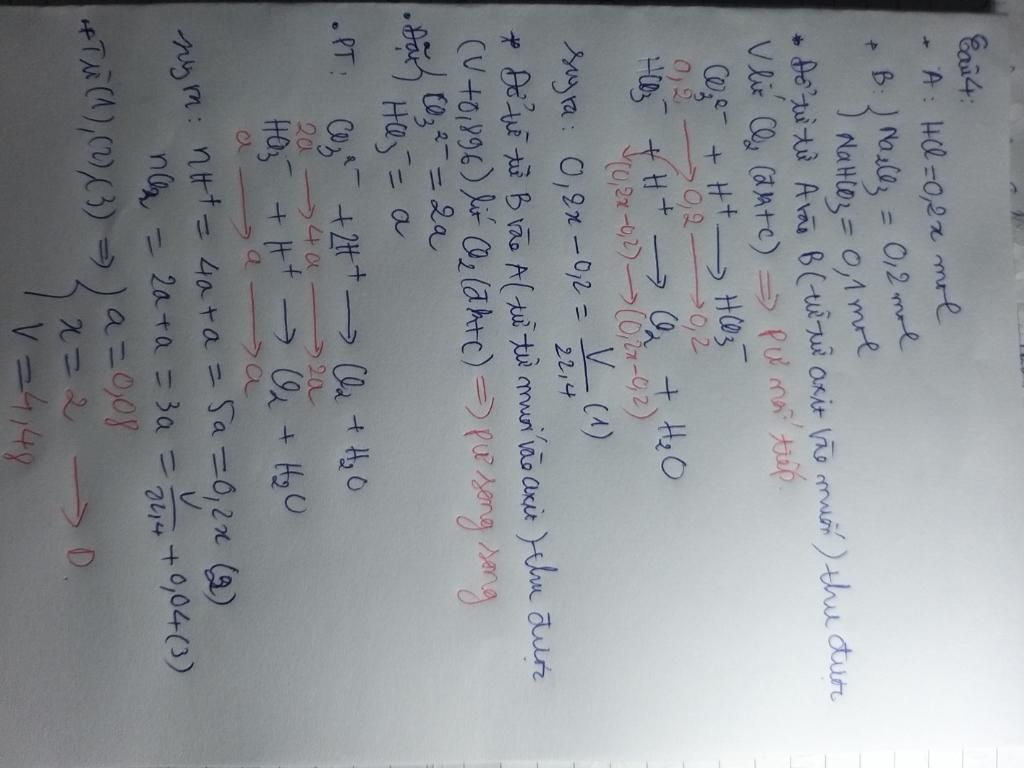 Bài 4:
+ A: HCl = 0,2x mol
+ B: { Na₂CO₃ = 0,2 mol
NaHCO₃ = 0,1 mol
* Đổ từ từ A vào B (từ từ axit vào muối) thu được
V lít CO₂ (đktc) => pứ nối tiếp.
CO₃²⁻ + H⁺ → HCO₃⁻
0,2 → 0,2 → 0,2
HCO₃⁻ + H⁺ → CO₂ + H₂O
(0,2x-0,2) → (0,2x-0,2)
suy ra: 0,2x - 0,2 = V/22,4 (1)
* Đổ từ từ B vào A (từ từ muối vào axit) thu được
(V + 0,896) lít CO₂ (đktc) => pứ song song
• Đặt { CO₃²⁻ = 2a
HCO₃⁻ = a
• PT: CO₃²⁻ + 2H⁺ → CO₂ + H₂O
2a → 4a → 2a
HCO₃⁻ + H⁺ → CO₂ + H₂O
a → a → a
suy ra: nH⁺ = 4a + a = 5a = 0,2x (2)
nCO₂ = 2a + a = 3a = V/22,4 + 0,04 (3)
+ Từ (1), (2), (3) => { a = 0,08
x = 2 → D.
V = 4,48